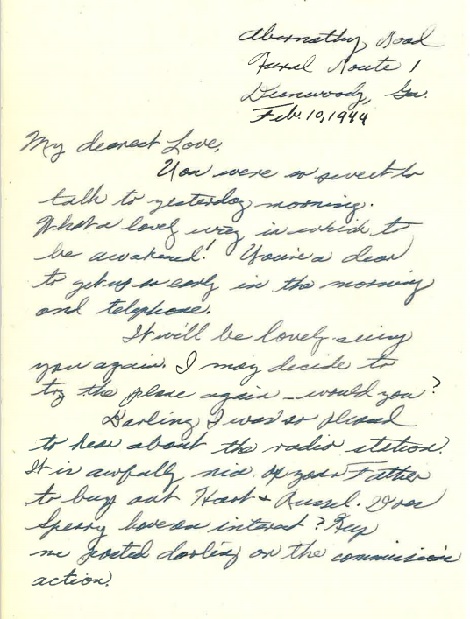 Abernathy Road
Rural Route 1
Dunwoody, Ga.
Feb. 10, 1949
My dearest Love,
You were so sweet to
talk to yesterday morning.
What a lovely way in which to
be awakened! You're a dear
to get up so early in the morning
and telephone.
It will be lovely seeing
you again. I may decide to
try the plane again – would you?
Darling I was so pleased
to hear about the radio station.
It is awfully nice of your Father
to buy out Hoot + Russel. Does
Sperry have an interest? Keep
me posted darling on the commission
action.